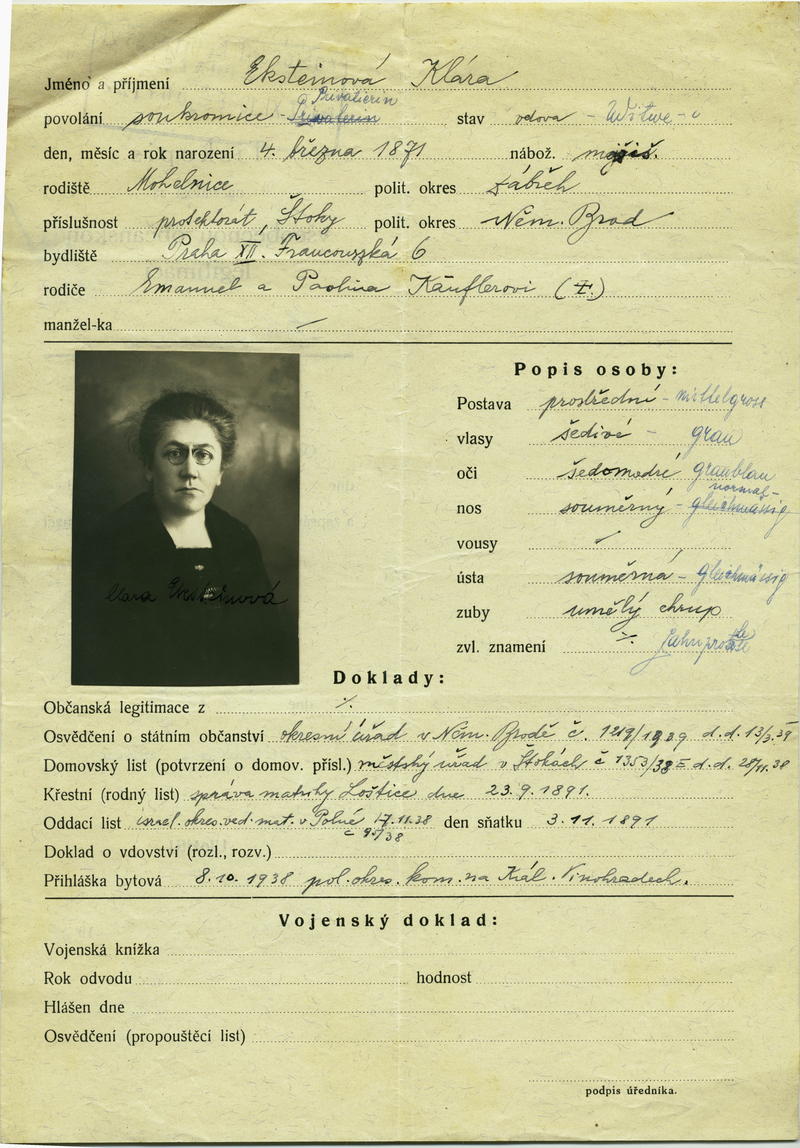 Jméno a příjmení Eksteinová Klára
Privatierin
povolání soukromice - Privaterin stav vdova - Witwe -
den, měsíc a rok narození 4. března 1871 nábož. mojžíš.
rodiště Mohelnice polit. okres Zábřeh
příslušnost protektorát, Štoky polit. okres Něm. Brod
bydliště Praha XII. Francouzská 6
rodiče Emanuel a Paolina Käuflerovi
manžel-ka —
Popis osoby:
Postava prostřední - mittelgross
vlasy šedivé - grau
oči šedomodré graublau
normal-
nos souměrný - gleichmässig
vousy
ústa souměrná - gleichmässig
zuby umělý chrup
zvl. znamení
Clara Eksteinová
Doklady:
Občanská legitimace z
Osvědčení o státním občanství okresní úřad v Něm. Brodě č. 1219/1939 d.d. 13/3.39
Domovský list (potvrzení o domov. přísl.) městský úřad v Štokách č 1353/38 d.d. 28/11.38
Křestní (rodný list) správa matriky Loštice dne 23.9.1891.
Oddací list israel. okres. ved. mat. v Polné 17.11.38 den sňatku 3.11.1891
č 95/38
Doklad o vdovství (rozl., rozv.)
Přihláška bytová 8.10.1938 pol. okres. kom. na Král. Vinohradech.
Vojenský doklad:
Vojenská knížka
Rok odvodu hodnost
Hlášen dne
Osvědčení (propouštěcí list)
podpis úředníka.